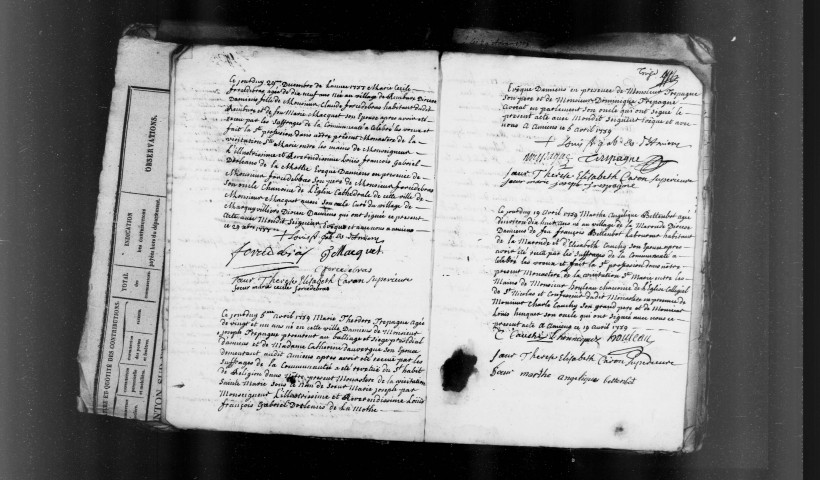 OBSERVATIONS.
INDICATION
TOTAL
DES
Ce jourdhuy 29me Decembre de L'année 1757 Marie Cecile
forcedebras agée de dix neuf ans née au village de Dioceze
Damiens fille de Monsieur Claude forcedebras habitant dudit
et de feu Marie Macquet son Epouse apres avoir eté
receue par les suffrages de la Communauté a Celebré les voeux et
fait la Ste profession dans notre present Monastere de la
visitation Ste Marie entre les mains de Monseigneur
L'illustrissime et Reverendissime Louis francois Gabriel
Dorleans de la Mothe Evêque Damiens en presence de
Monsieur forcedebras son pere de Monsieur forcedebras
son oncle Chanoine de L'Eglise Cathedrale de cette ville de
Monsieur Macquet aussi son oncle Curé du village de
Dioceze Damiens qui ont signés ce present
acte avec Mondit Seigneur Evêque et avec nous a amiens
ce 29 1757
+ Louis f. g. ev. d'Amiens
forcedebras Macquet
forcedebras
Soeur Therese Elisabeth Caron Superieure
Soeur marie cecile forcedebras
Ce jourdhuy 6me avril 1759 Marie Theodore Trepagne agée
de vingt et un ans né en cette ville Damiens de Monsieur
Joseph Trepagne president au bailliage et siege presidial
Damiens et de Madame Catherine dauvergne son Epouse
demeurant audit Amiens apres avoir eté receue par les
suffrages de la Communauté a eté revetue du St habit
de Religion dans notre present Monastere de la visitation
Sainte Marie sous le Nom de Soeur Marie Joseph par
Monseigneur L'illustrissime et Reverendissime Louis
françois Gabriel Dorleans de La Mothe
Evêque Damiens en presence de Monsieur Trepagne
son pere et de Monsieur Dominique Trepagne
avocat en parlement son oncle qui ont signé le
present acte avec Mondit Seigneur Evêque et avec
nous a Amiens ce 6 avril 1759
+ Louis f. g. ev. d'Amiens
Trespagne
Soeur Therese Elisabeth Caron Superieure
Soeur marie joseph trespagne
Ce jourdhuy 19 Avril 1759 Marthe Angelique Bellenbot agée
denviron dix huit ans née au village de la Maronde Dioceze
Damiens de feu françois Bellenbot Laboureur habitant
de la Maronde et d'Elisabeth Cauchy son Epouse apres
avoir eté receue par les suffrages de la Communauté a
Celebré les voeux et fait la Ste profession dans notre
present Monastere de la visitation Ste Marie entre les
Mains de Monsieur houleau Chanoine de L'Eglise Collegial
de St Nicolas et Confesseur dudit Monastere en presence de
Monsieur Charle Cauchy son Grand pere et de Monsieur
Louis son oncle qui ont signés avec nous ce
present acte a Amiens ce 19 avril 1759
C Cauchy houleau
Soeur Therese Elisabeth Caron Superieure
Soeur marthe angelique bellenbot